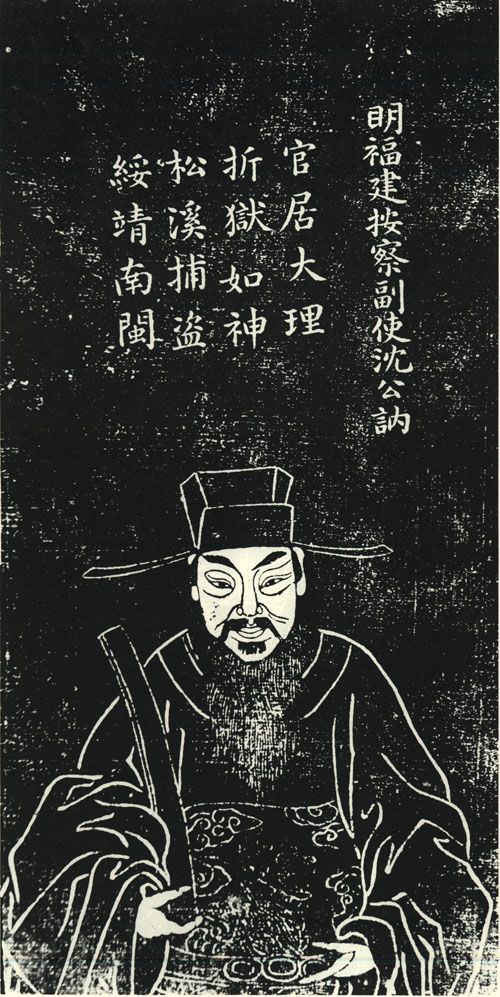 明福建按察副使沈公訥
官居大理
折獄如神
松溪捕盜
綏靖南閩